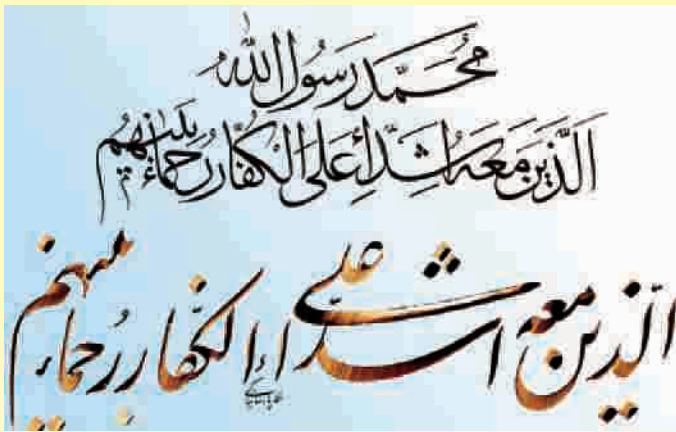 محمد رسول الله
الذین معه اشداء علی الکفار رحماء بینهم
الذین معه اشداء علی الکفار رحماء بینهم